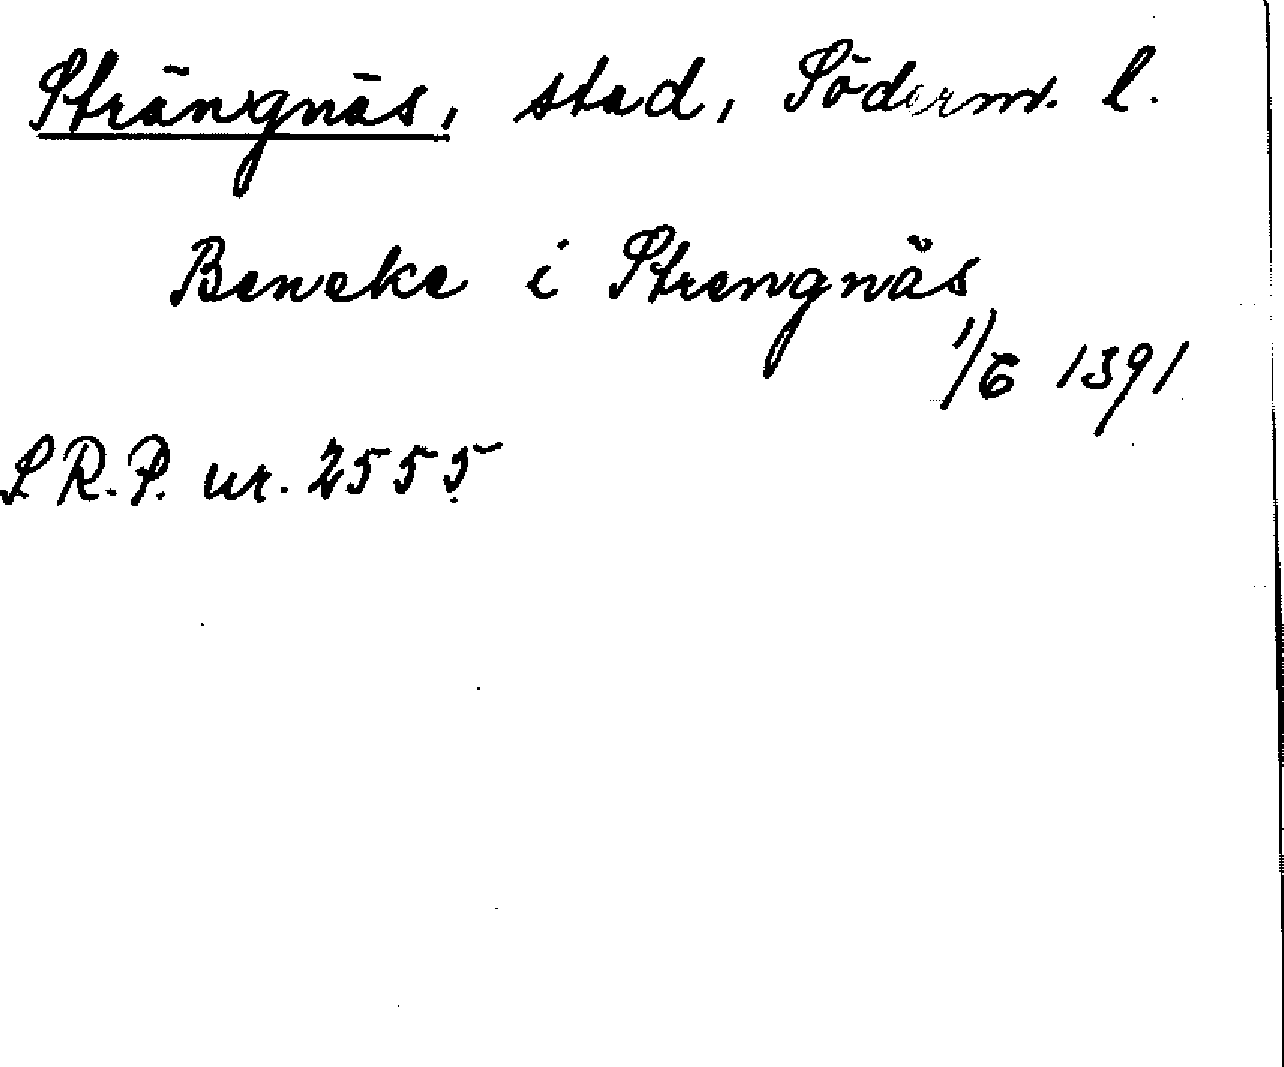 Strängnäs, stad, Söderm. l.
Beneke i Strengnäs
1/6 1391
S.R.P. nr. 2555